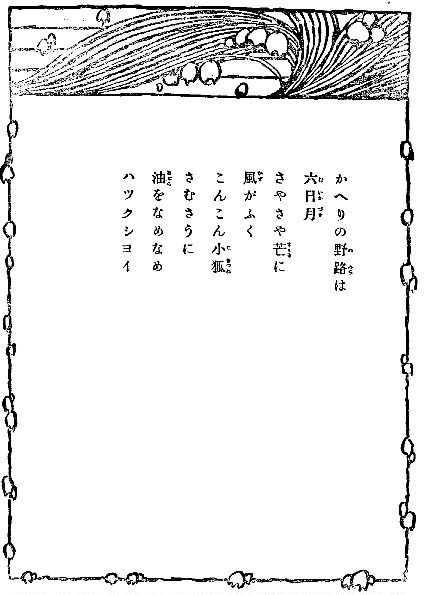 かへりの野路は
六日月
さやさや芒に
風がふく
こんこん小狐
さむさうに
油をなめなめ
ハツクシヨイ